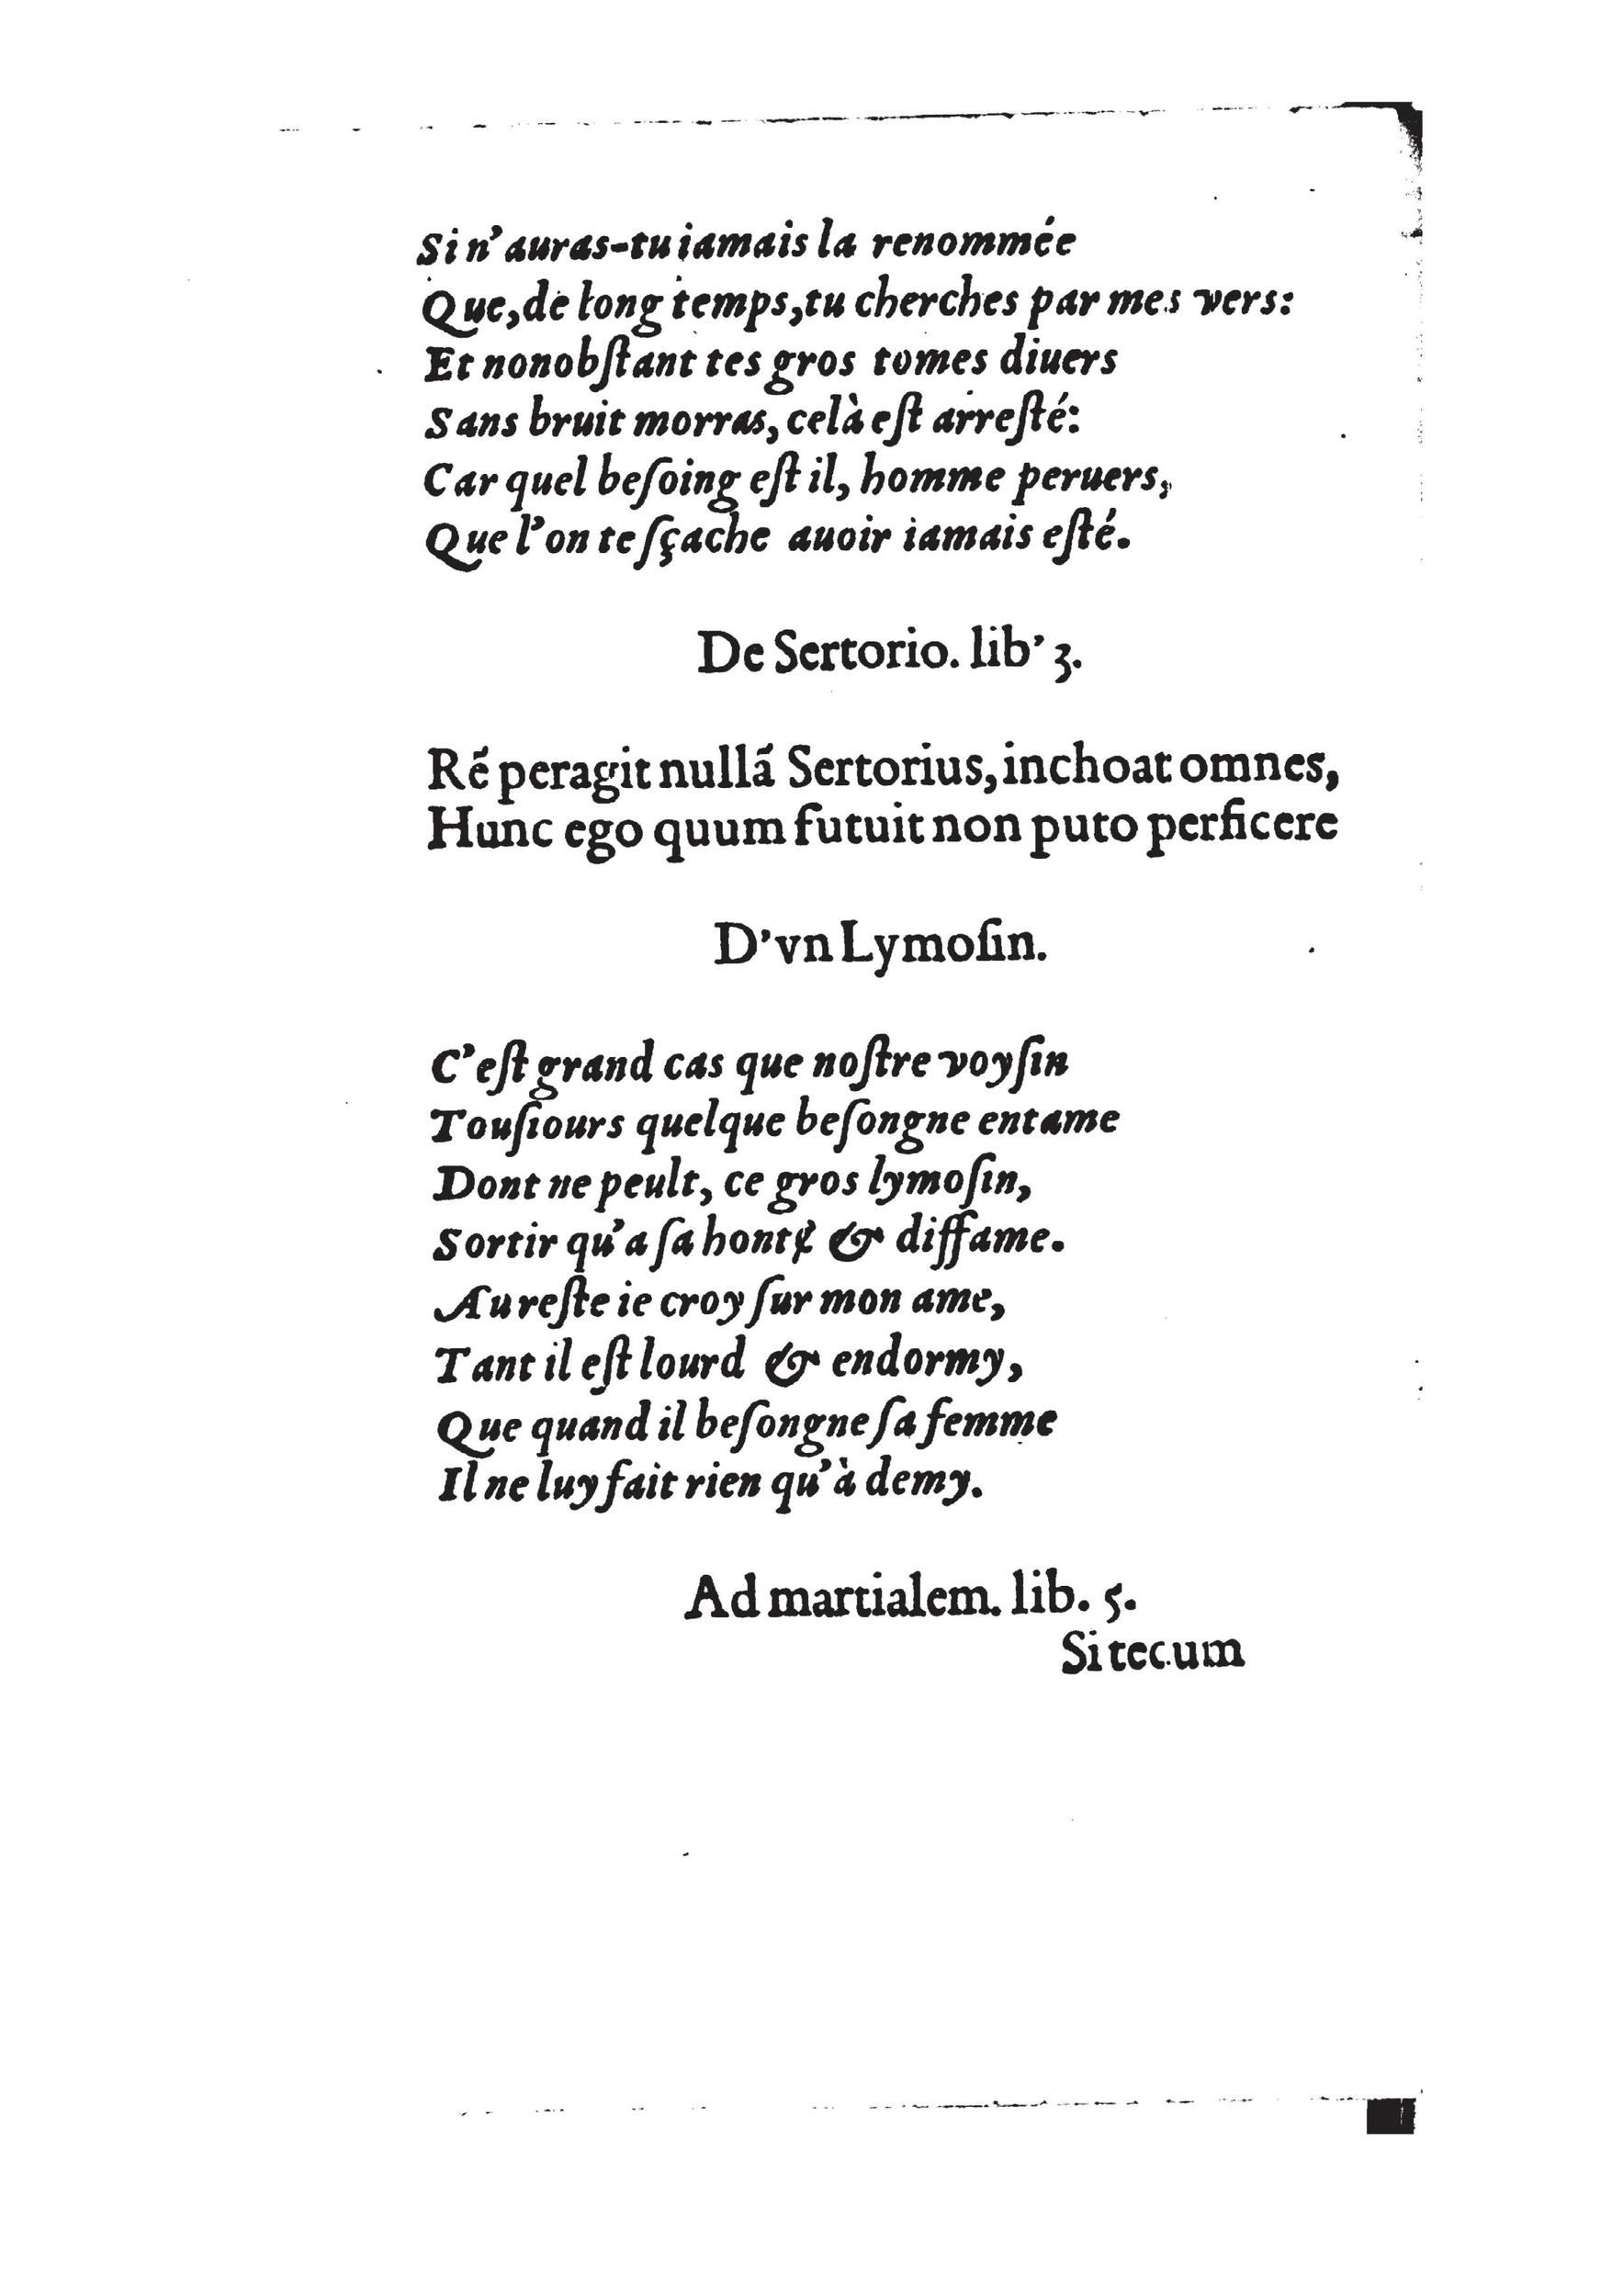 Si n'auras-tu iamais la renommée
Que, de long temps, tu cherches par mes vers:
Et nonobſtant tes gros tomes diuers
Sans bruit morras, celà eſt arreſté:
Car quel beſoing eſt il, homme peruers,
Que l'on te ſçache auoir iamais eſté.
De Sertorio. lib' 3.
Ré peragit nullá Sertorius, inchoat omnes,
Hunc ego quum futuit non puto perficere
D'vn Lymoſin.
C'eſt grand cas que noſtre voyſin
Touſiours quelque beſongne entame
Dont ne peult, ce gros lymoſin,
Sortir qu'a ſa hontɇ & diffame.
Au reſte ie croy ſur mon ame,
Tant il eſt lourd & endormy,
Que quand il beſongne ſa femme
Il ne luy fait rien qu'à demy.
Ad martialem. lib. 5.
Si tecum